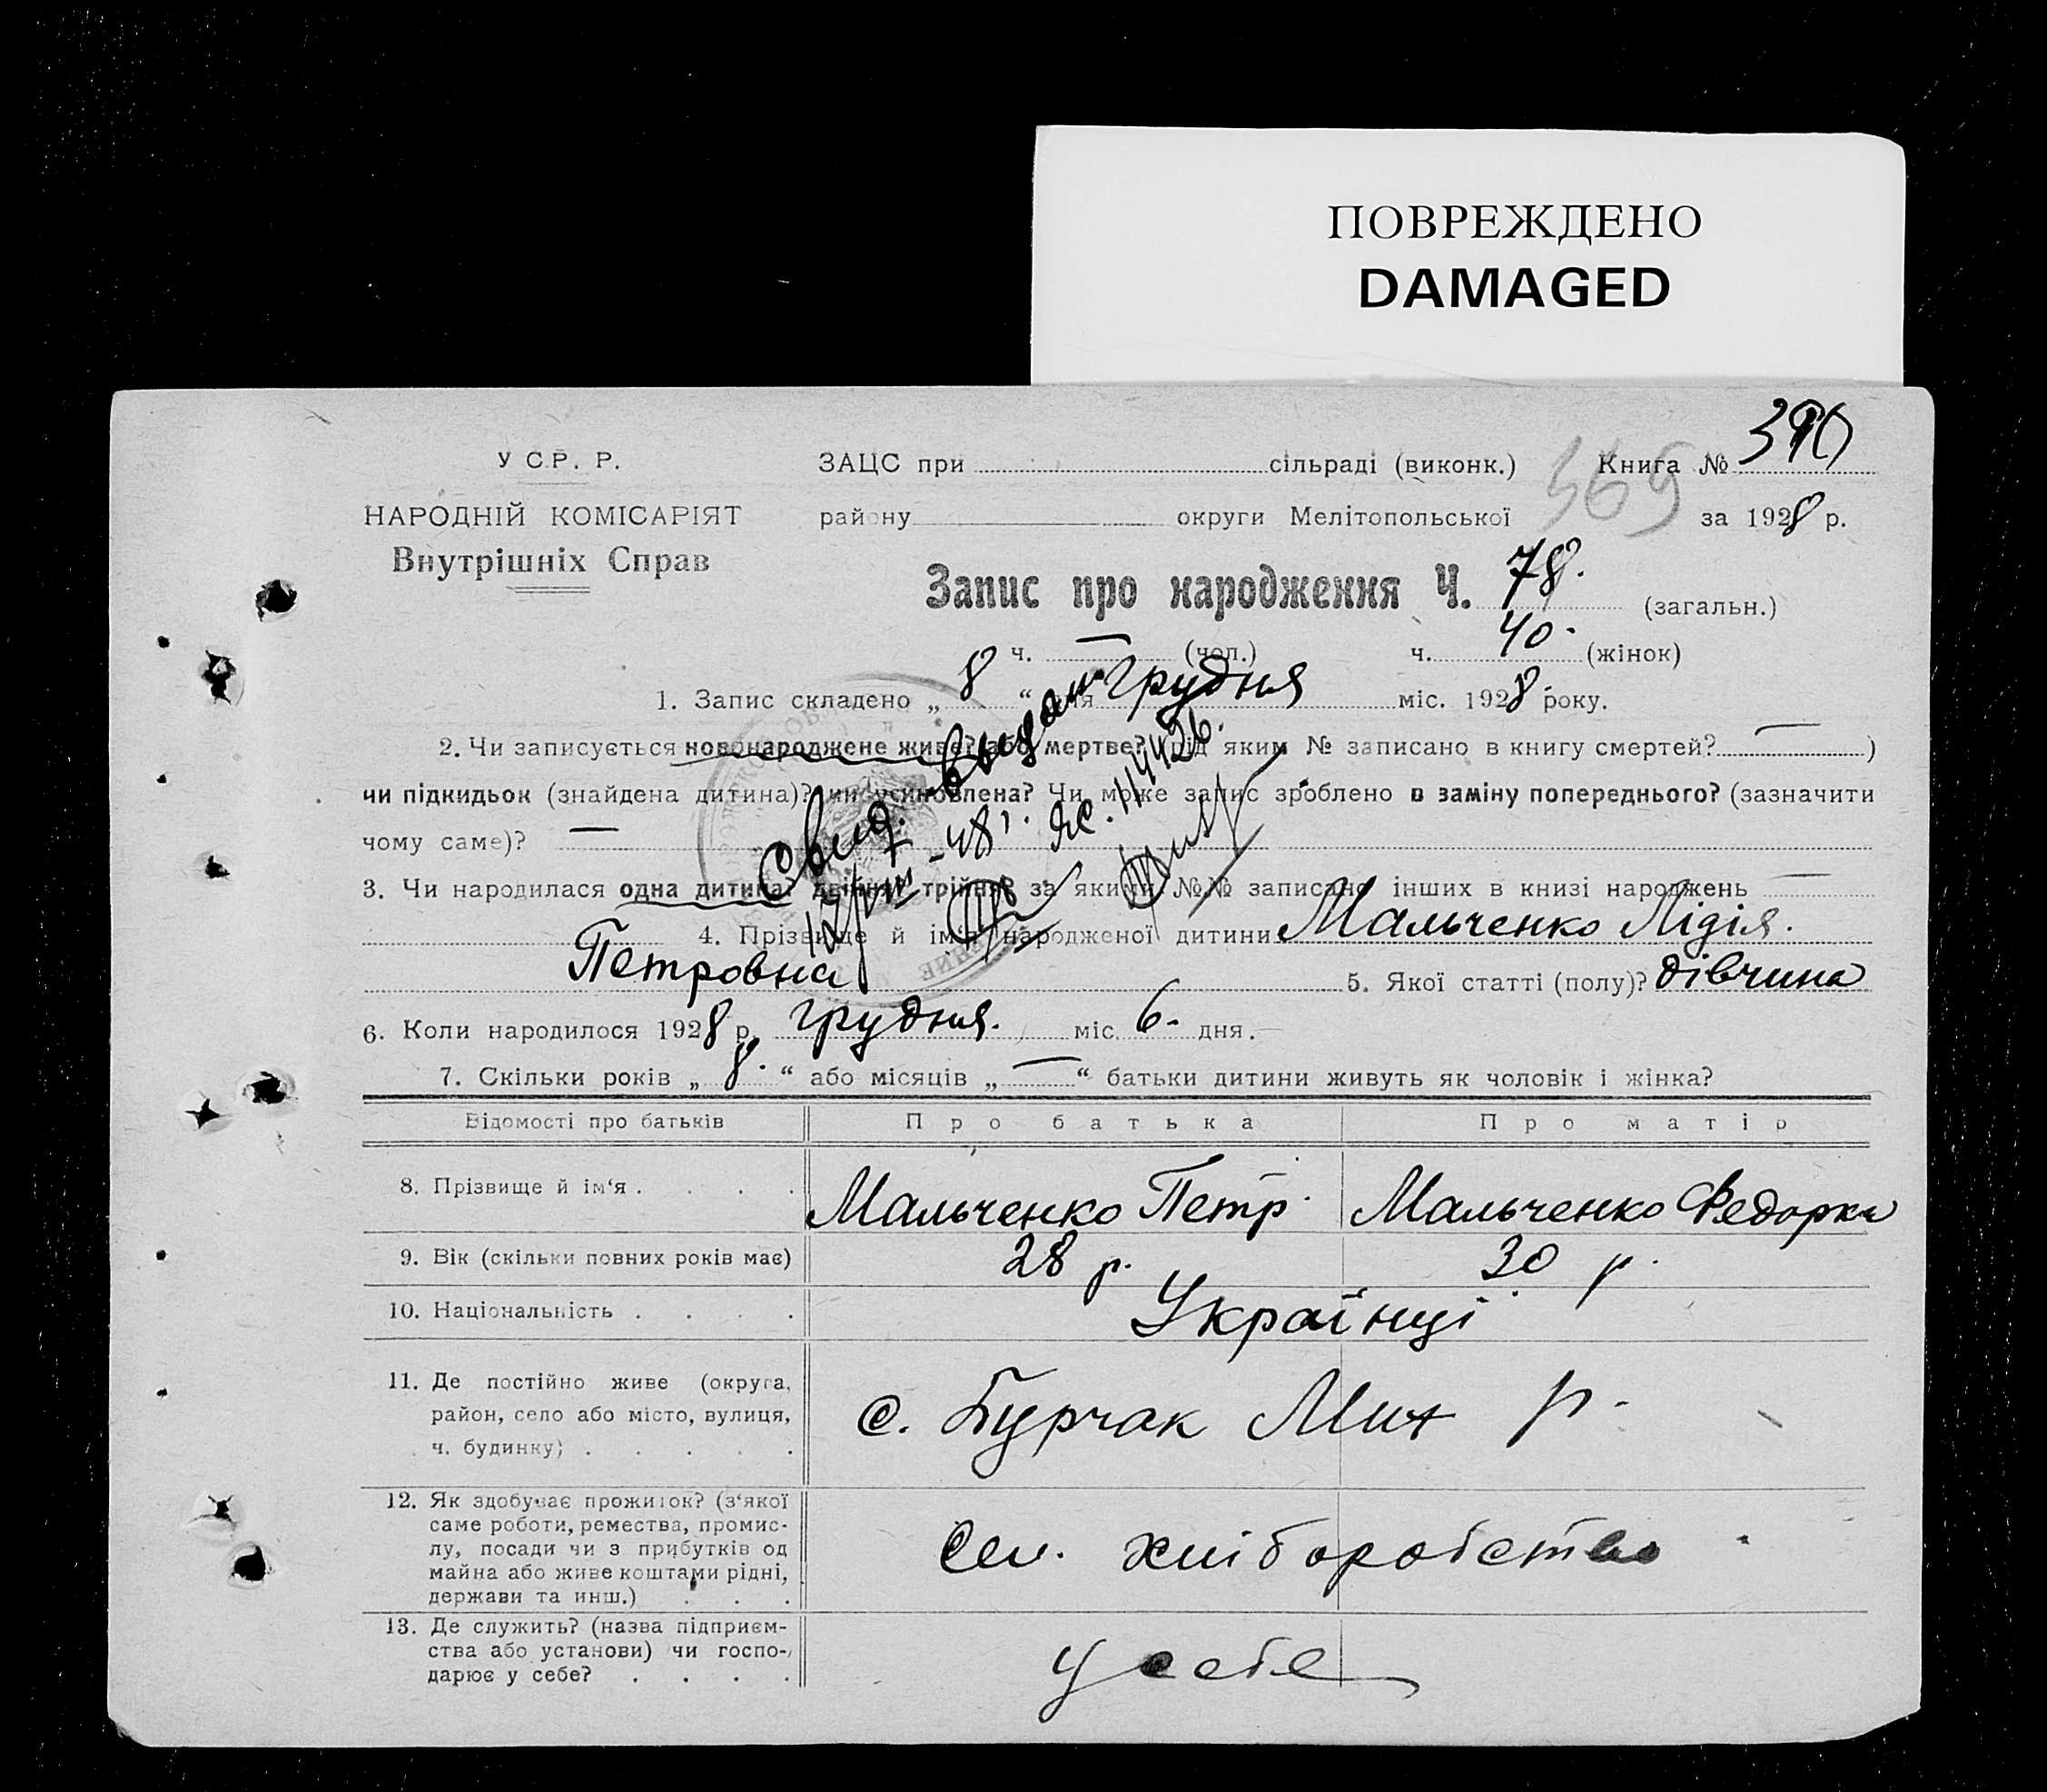 ПОВРЕЖДЕНО
DAMAGED
У С.Р. Р.
НАРОДНІЙ КОМІСАРІЯТ
Внутрішніх Справ
ЗАЦС при сільраді (виконк.) Книга № 390
569
району округи Мелітопольської за 1928 р.
Запис про народження Ч. 78. (загальн.)
ч. — (чол.) ч. 40. (жінок)
1. Запис складено „ 8 “ дня Грудня міс. 1928 року.
2. Чи записується новонароджене живе? або мертве? (під яким № записано в книгу смертей? — )
чи підкидьок (знайдена дитина)? чи усиновлена? Чи може запис зроблено в заміну попереднього? (зазначити
чому саме)? —
Свид. выдан
12/VIII-48 г. ЯС. 114426.
3. Чи народилася одна дитина? двійня? трійня? за якими №№ записано інших в книзі народжень —
4. Прізвище й ім'я народженої дитини Мальченко Лідія.
Петровна 5. Якої статті (полу)? дівчина
6. Коли народилося 1928 р. Грудня. міс. 6. дня.
7. Скільки років „ 8. “ або місяців „ — “ батьки дитини живуть як чоловік і жінка?
Відомості про батьків Про батька Про матір
8. Прізвище й ім'я . . . . Мальченко Петр. Мальченко Федорка
9. Вік (скільки повних років має) 28 р. 30 р.
10. Національність . . . . Українці
11. Де постійно живе (округа,
район, село або місто, вулиця,
ч. будинку) . . . . .
с. Бурчак Мих р.
12. Як здобуває прожиток? (з'якої
саме роботи, ремества, промис-
лу, посади чи з прибутків од
майна або живе коштами рідні,
держави та инш.) . . .
Сел. хліборобство
13. Де служить? (назва підприєм-
ства або установи) чи госпо-
дарює у себе? . . . .
у себе